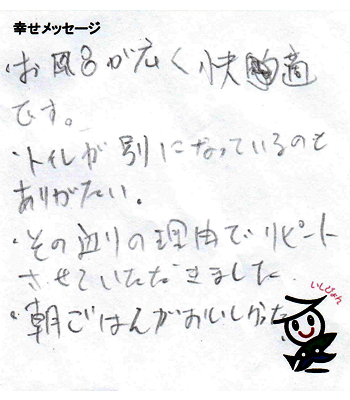 幸せメッセージ
・お風呂が広く快適
です。
・トイレが別になっているのも
ありがたい。
・その辺りの理由でリピート
させていただきました
・朝ごはんがおいしかった
いしぴょん